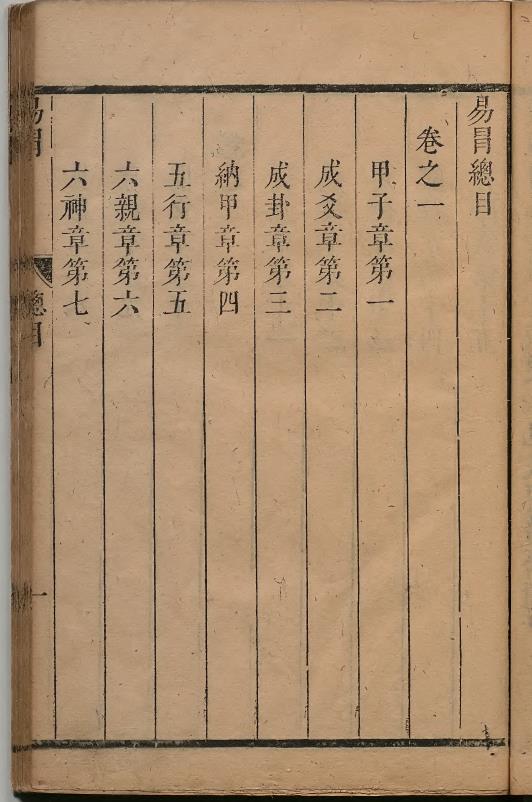 易冒總目
卷之一
甲子章第一
成爻章第二
成卦章第三
納甲章第四
五行章第五
六親章第六
六神章第七
易冒
總目
一